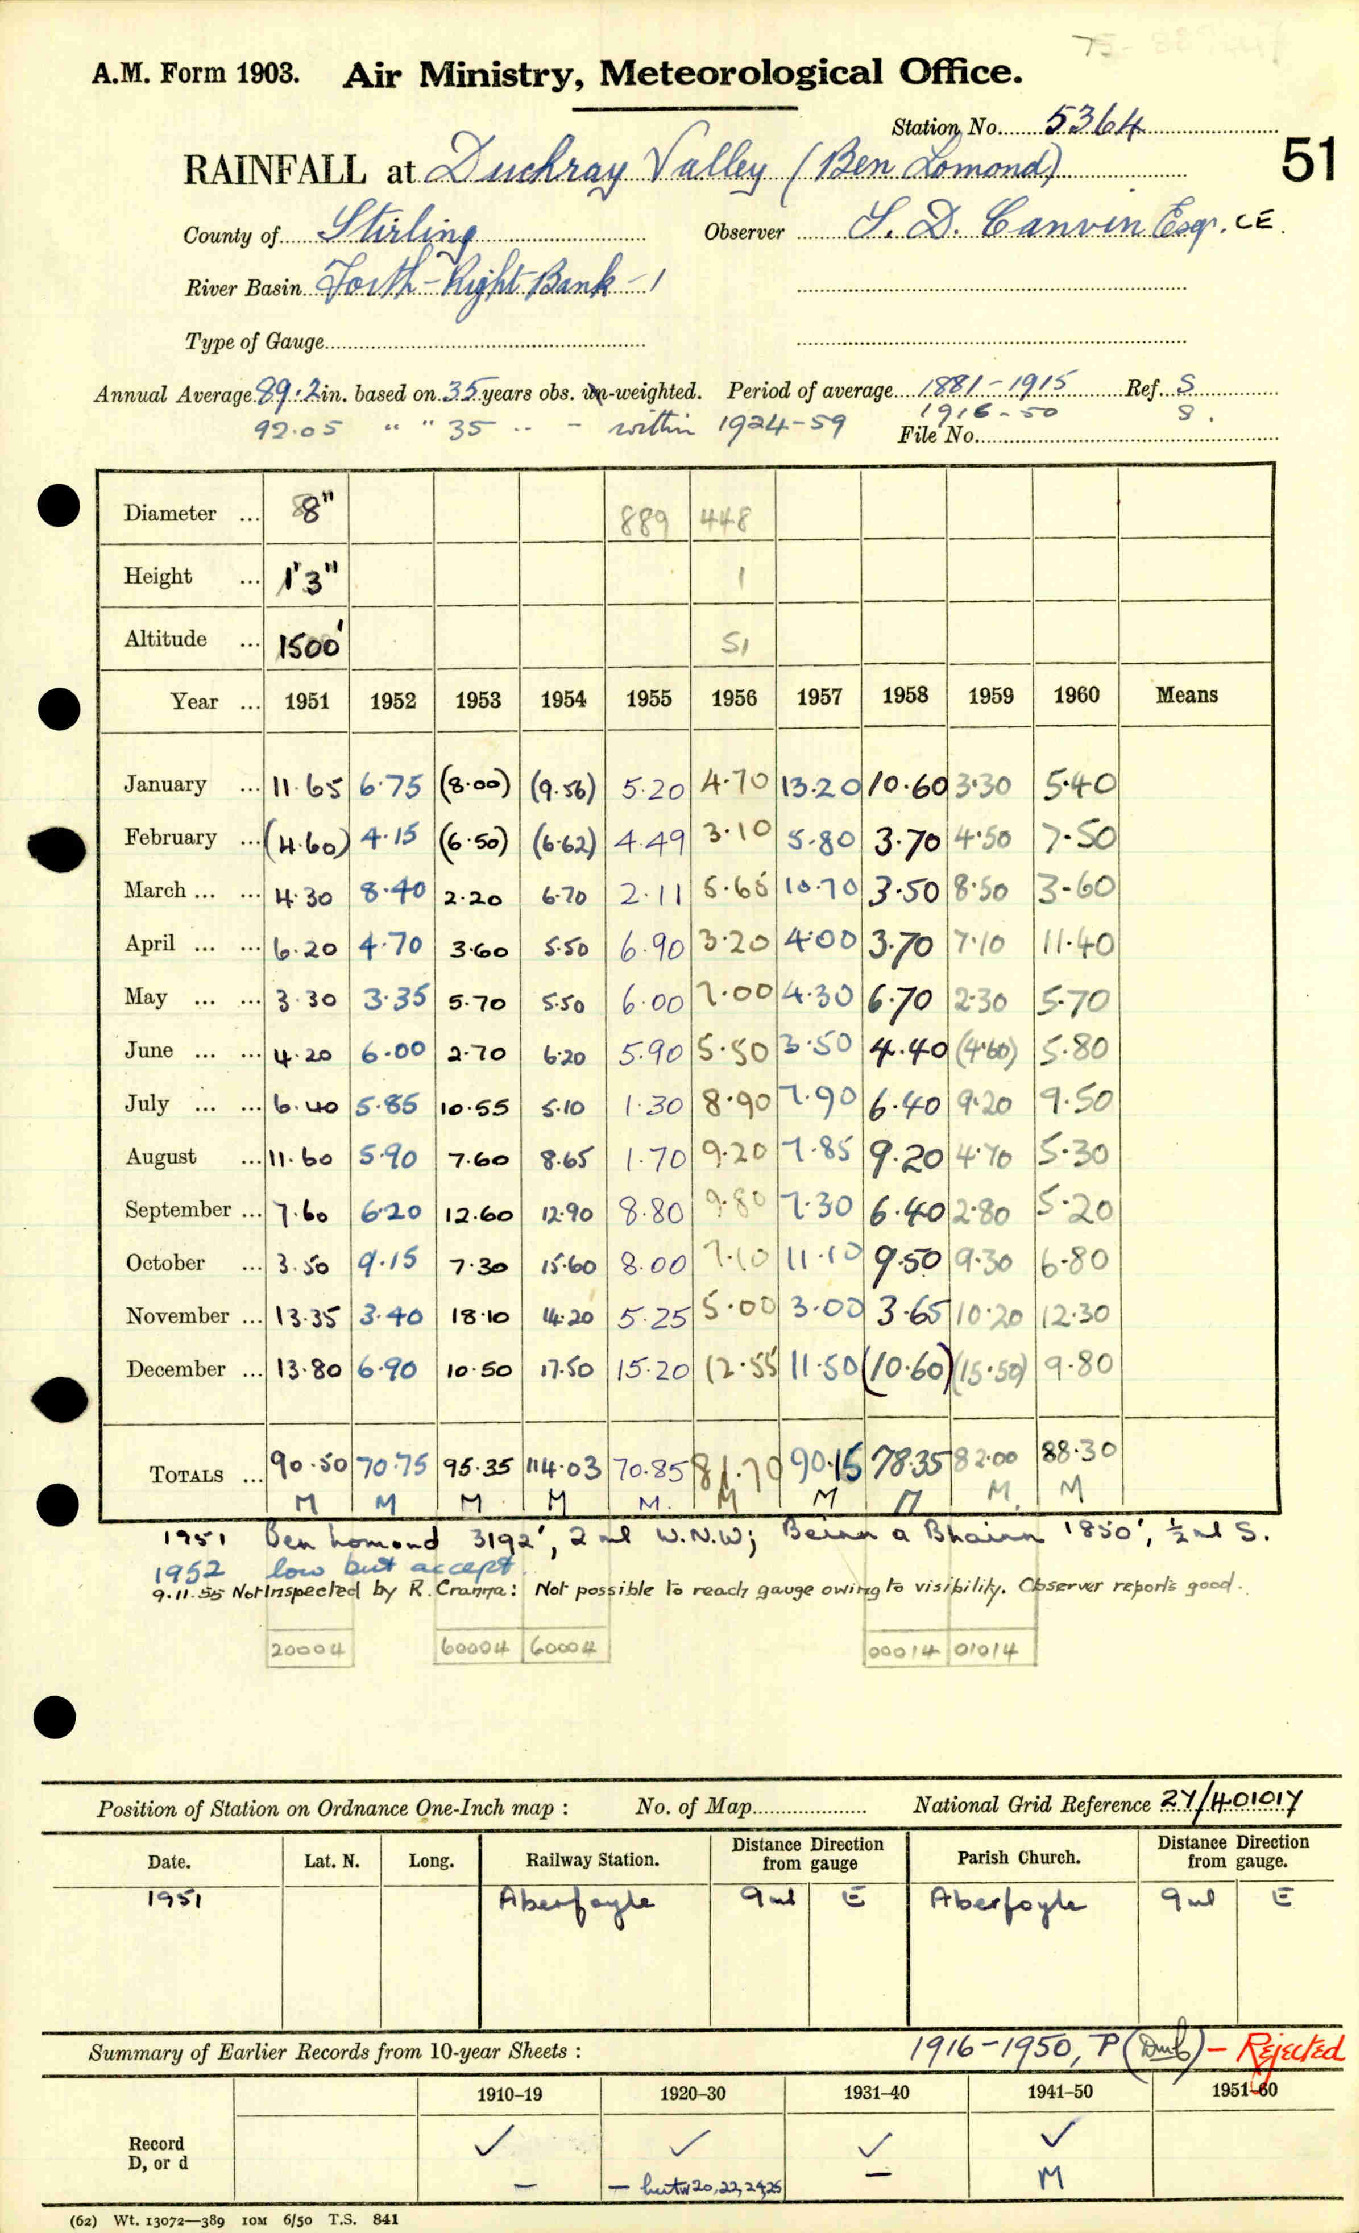 75-889
A.M. Form 1903. Air Ministry, Meteorological Office.
Station No. 5364
51
RAINFALL at Duchray Valley (Ben Lomond)
County of Stirling Observer S. D. Canvin Esqr. CE.
River Basin Forth - Right Bank - 1
Type of Gauge
Annual Average 89.2 in. based on 35 years obs. un-weighted. Period of average 1881-1915 Ref. S
92.05 " " 35 " - within 1924-59 1916-50 S.
File No.
Diameter ... 8" 889 448
Height ... 1'3" 1
Altitude ... 1500' 51
Year ... 1951 1952 1953 1954 1955 1956 1957 1958 1959 1960 Means
January ... 11.65 6.75 (8.00) (9.56) 5.20 4.70 13.20 10.60 3.30 5.40
February ... (4.60) 4.15 (6.50) (6.62) 4.49 3.10 5.80 3.70 4.50 7.50
March ... ... 4.30 8.40 2.20 6.70 2.11 5.65 10.70 3.50 8.50 3.60
April ... ... 6.20 4.70 3.60 5.50 6.90 3.20 4.00 3.70 7.10 11.40
May ... ... 3.30 3.35 5.70 5.50 6.00 7.00 4.30 6.70 2.30 5.70
June ... ... 4.20 6.00 2.70 6.20 5.90 5.50 3.50 4.40 (4.60) 5.80
July ... ... 6.40 5.85 10.55 5.10 1.30 8.90 7.90 6.40 9.20 9.50
August ... 11.60 5.90 7.60 8.65 1.70 9.20 7.85 9.20 4.70 5.30
September ... 7.60 6.20 12.60 12.90 8.80 9.80 7.30 6.40 2.80 5.20
October ... 3.50 9.15 7.30 15.60 8.00 7.10 11.10 9.50 9.30 6.80
November ... 13.35 3.40 18.10 14.20 5.25 5.00 3.00 3.65 10.20 12.30
December ... 13.80 6.90 10.50 17.50 15.20 12.55 11.50 (10.60) (15.50) 9.80
TOTALS ... 90.50 70.75 95.35 114.03 70.85 81.70 90.15 78.35 82.00 88.30
M M M M M. M M M M. M
1951 Ben Lomond 3192', 2 ml W.N.W; Beinn a Bhainn 1850', ½ ml S.
1952 low but accept.
9.11.55 Not Inspected by R. Cranna: Not possible to reach gauge owing to visibility. Observer reports good.
20004 60004 60004 00014 01014
Position of Station on Ordnance One-Inch map : No. of Map National Grid Reference 27/401017
Date. Lat. N. Long. Railway Station. Distance from gauge Direction Parish Church. Distance from gauge. Direction
1951 Aberfoyle 9 ml E Aberfoyle 9 ml E
Summary of Earlier Records from 10-year Sheets : 1916-1950, P (Dmb) - Rejected
1910-19 1920-30 1931-40 1941-50 1951-60
Record ✓ ✓ ✓ ✓
D, or d - - but w 20, 22, 24, 25 - M
(62) Wt. 13072—389 10M 6/50 T.S. 841